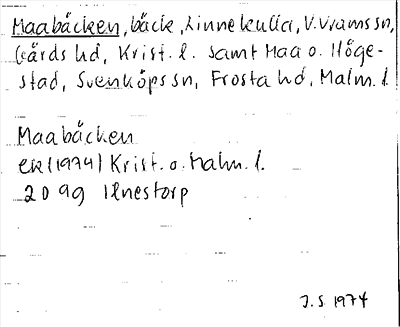 Maabäcken, bäck, Linnekulla, V. Vrams sn,
Gärds hd, Krist. l. samt Maa o. Höge-
stad, Svensköps sn, Frosta hd, Malm. l.
Maabäcken
ek (1974) Krist. o. Malm. l.
2 D 9g Ilnestorp
J. S 1974